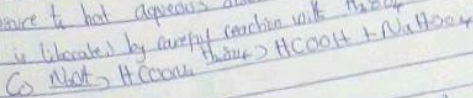 to hot aqueous
is liberated by careful reaction with H2SO4
CO NaOH> HCOONa H2SO4> HCOOH + NaHSO4